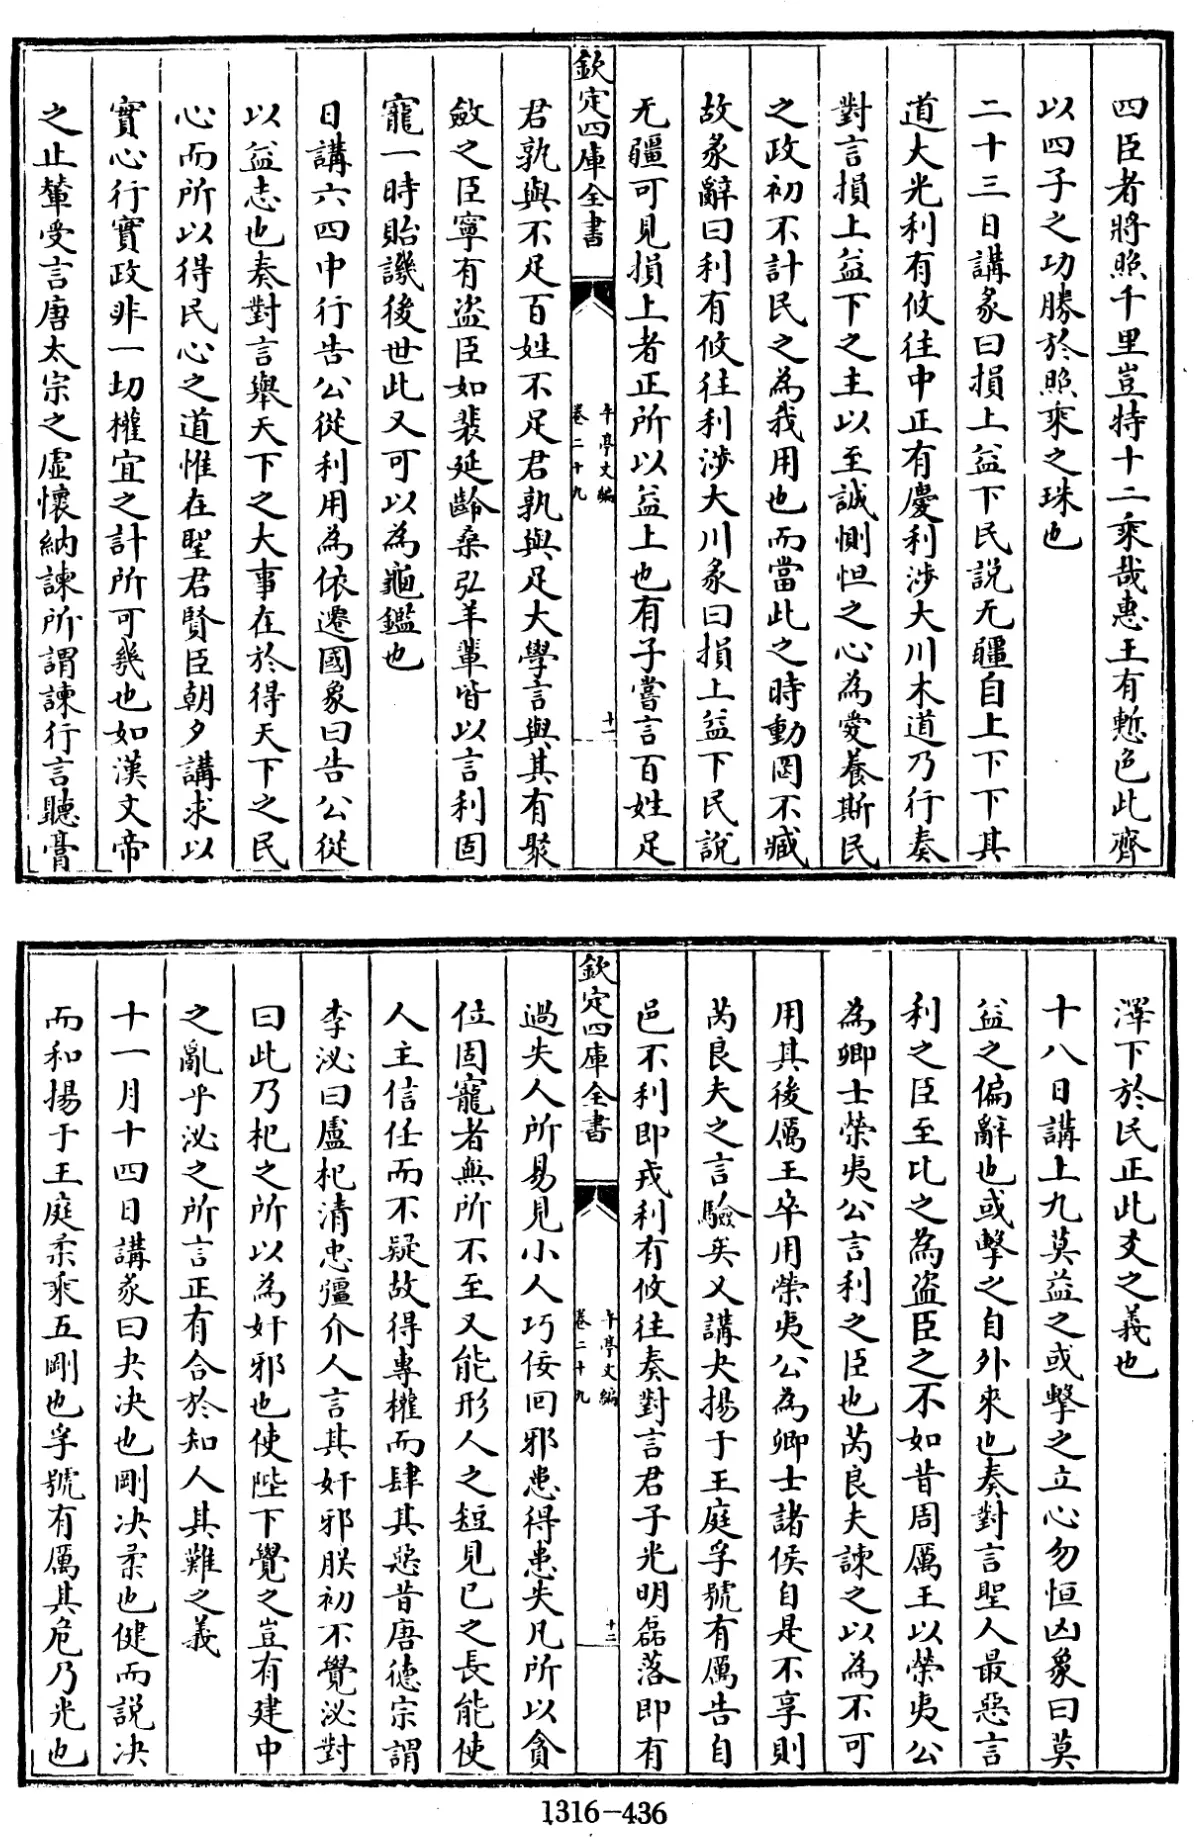 四臣者將照千里豈特十二乘哉惠王有慙色此齊
以四子之功勝於照乘之珠也
二十三日講彖曰損上益下民說无疆自上下下其
道大光利有攸往中正有慶利涉大川木道乃行奏
對言損上益下之主以至誠惻怛之心為愛養斯民
之政初不計民之為我用也而當此之時動罔不臧
故彖辭曰利有攸往利涉大川彖曰損上益下民說
无疆可見損上者正所以益上也有子嘗言百姓足
欽定四庫全書
午亭文編
卷二十九
十一
君孰與不足百姓不足君孰與足大學言與其有聚
斂之臣寧有盜臣如裴延齡桑弘羊輩皆以言利固
寵一時貽譏後世此又可以為龜鑑也
日講六四中行告公從利用為依遷國象曰告公從
以益志也奏對言舉天下之大事在於得天下之民
心而所以得民心之道惟在聖君賢臣朝夕講求以
實心行實政非一切權宜之計所可幾也如漢文帝
之止輦受言唐太宗之虛懷納諫所謂諫行言聽膏
澤下於民正此爻之義也
十八日講上九莫益之或擊之立心勿恒凶象曰莫
益之偏辭也或擊之自外來也奏對言聖人最惡言
利之臣至比之為盜臣之不如昔周厲王以榮夷公
為卿士榮夷公言利之臣也芮良夫諫之以為不可
用其後厲王卒用榮夷公為卿士諸侯自是不享則
芮良夫之言驗矣又講夬揚于王庭孚號有厲告自
邑不利即戎利有攸往奏對言君子光明磊落即有
欽定四庫全書
午亭文編
卷二十九
十二
過失人所易見小人巧佞回邪患得患失凡所以貪
位固寵者無所不至又能形人之短見己之長能使
人主信任而不疑故得專權而肆其惡昔唐德宗謂
李泌曰盧杞清忠彊介人言其奸邪朕初不覺泌對
曰此乃杞之所以為奸邪也使陛下覺之豈有建中
之亂乎泌之所言正有合於知人其難之義
十一月十四日講彖曰夬決也剛決柔也健而說決
而和揚于王庭柔乘五剛也孚號有厲其危乃光也
1316-436